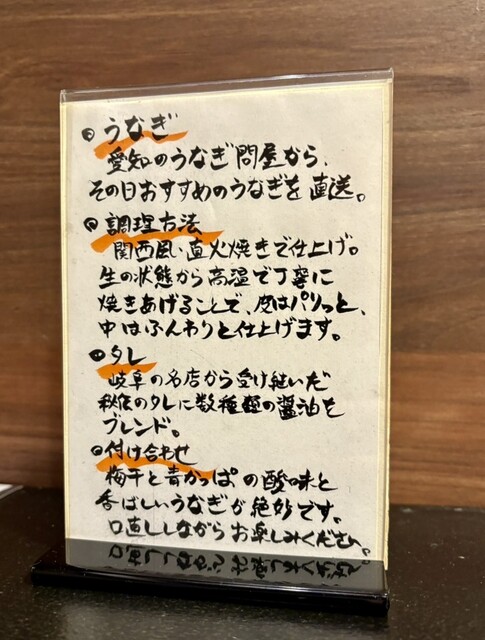 うなぎ
愛知のうなぎ問屋から、
その日おすすめのうなぎを直送。
調理方法
関西風・直火焼きで仕上げ。
生の状態から高温で丁寧に
焼きあげることで、皮はパリっと、
中はふんわりと仕上げます。
タレ
岐阜の名店から受け継いだ
秘伝のタレに数種類の醤油を
ブレンド。
付け合わせ
梅干と青かっぱの酸味と
香ばしいうなぎが絶妙です。
口直ししながらお楽しみください。